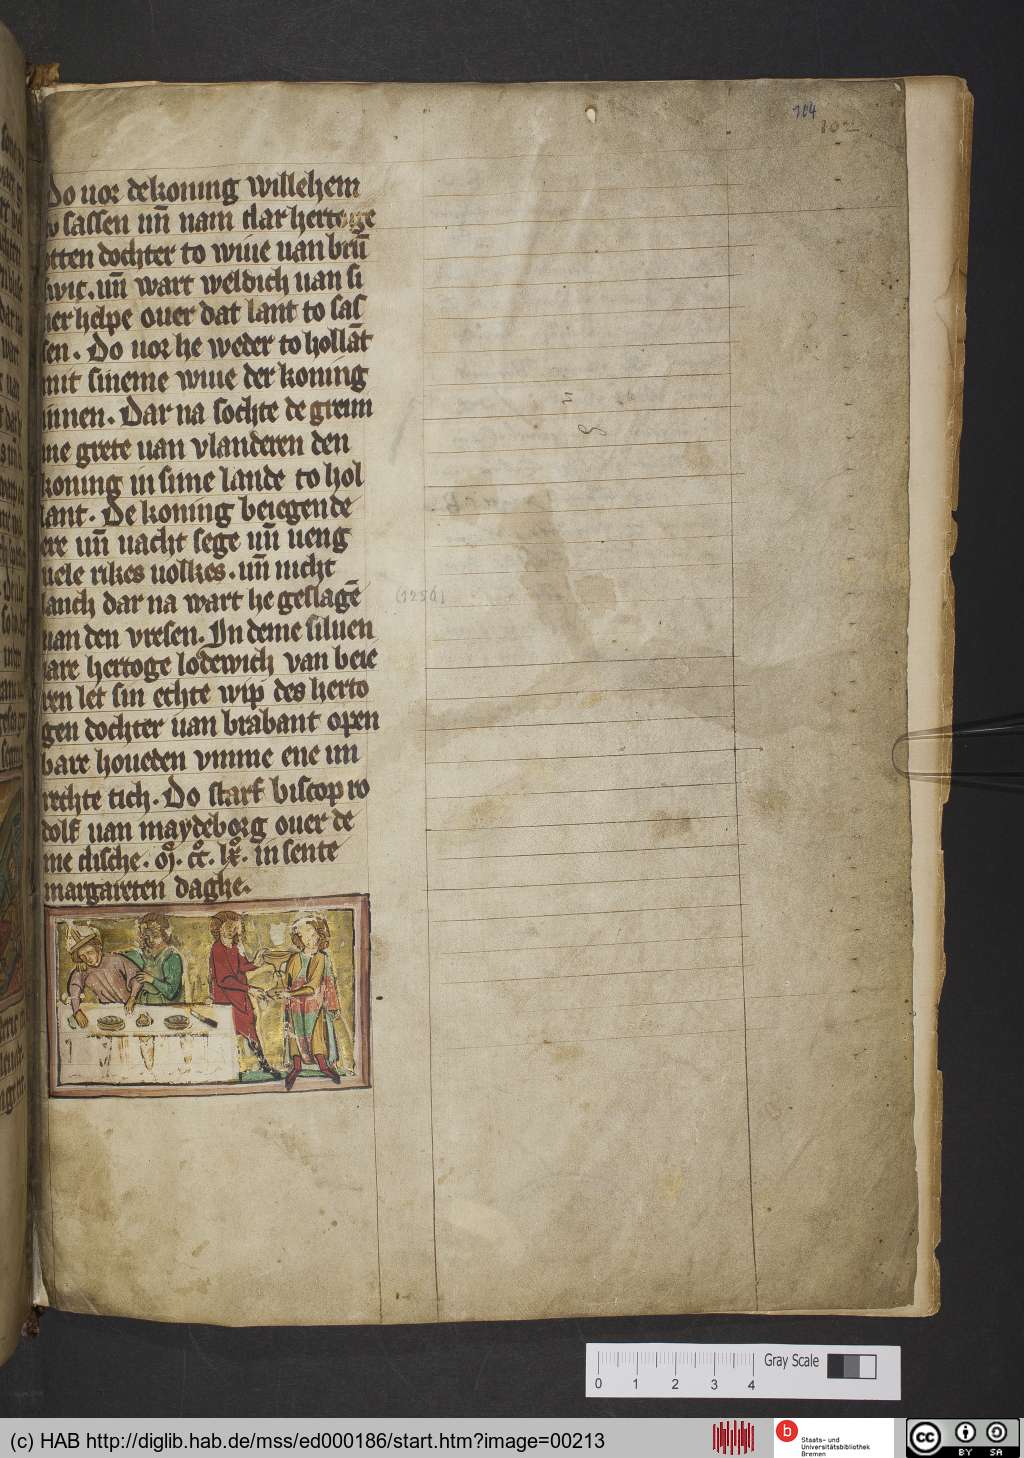 104
102
Do uor dekoning willehem
to sassen uñ nam dar hertoge
otten dochter to wiue uan brũ
swic. uñ wart weldich uan si
ner helpe ouer dat lant to sas
sen. Do uor he weder to hollãt
mit sineme wiue der koning
innen. Dar na sochte de greuin
ne grete uan vlanderen den
koning in sime lande to hol
lant. De koning beiegende
ere uñ uacht sege uñ ueng
uele rikes uolkes. uñ nicht
lanch dar na wart he geslagẽ
uan den vresen. In deme siluen
iare hertoge lodewich van beie
ren let sin echte wip des herto
gen dochter uan brabant open
bare houeden vmme ene un
rechte tich. Do starf biscop ro
dolf uan maydeborg ouer de
me dische. M. CC. LX. in sente
margareten daghe.
(1256)
Gray Scale
0 1 2 3 4
(c) HAB http://diglib.hab.de/mss/ed000186/start.htm?image=00213
b
Staats- und
Universitätsbibliothek
Bremen
cc
BY SA